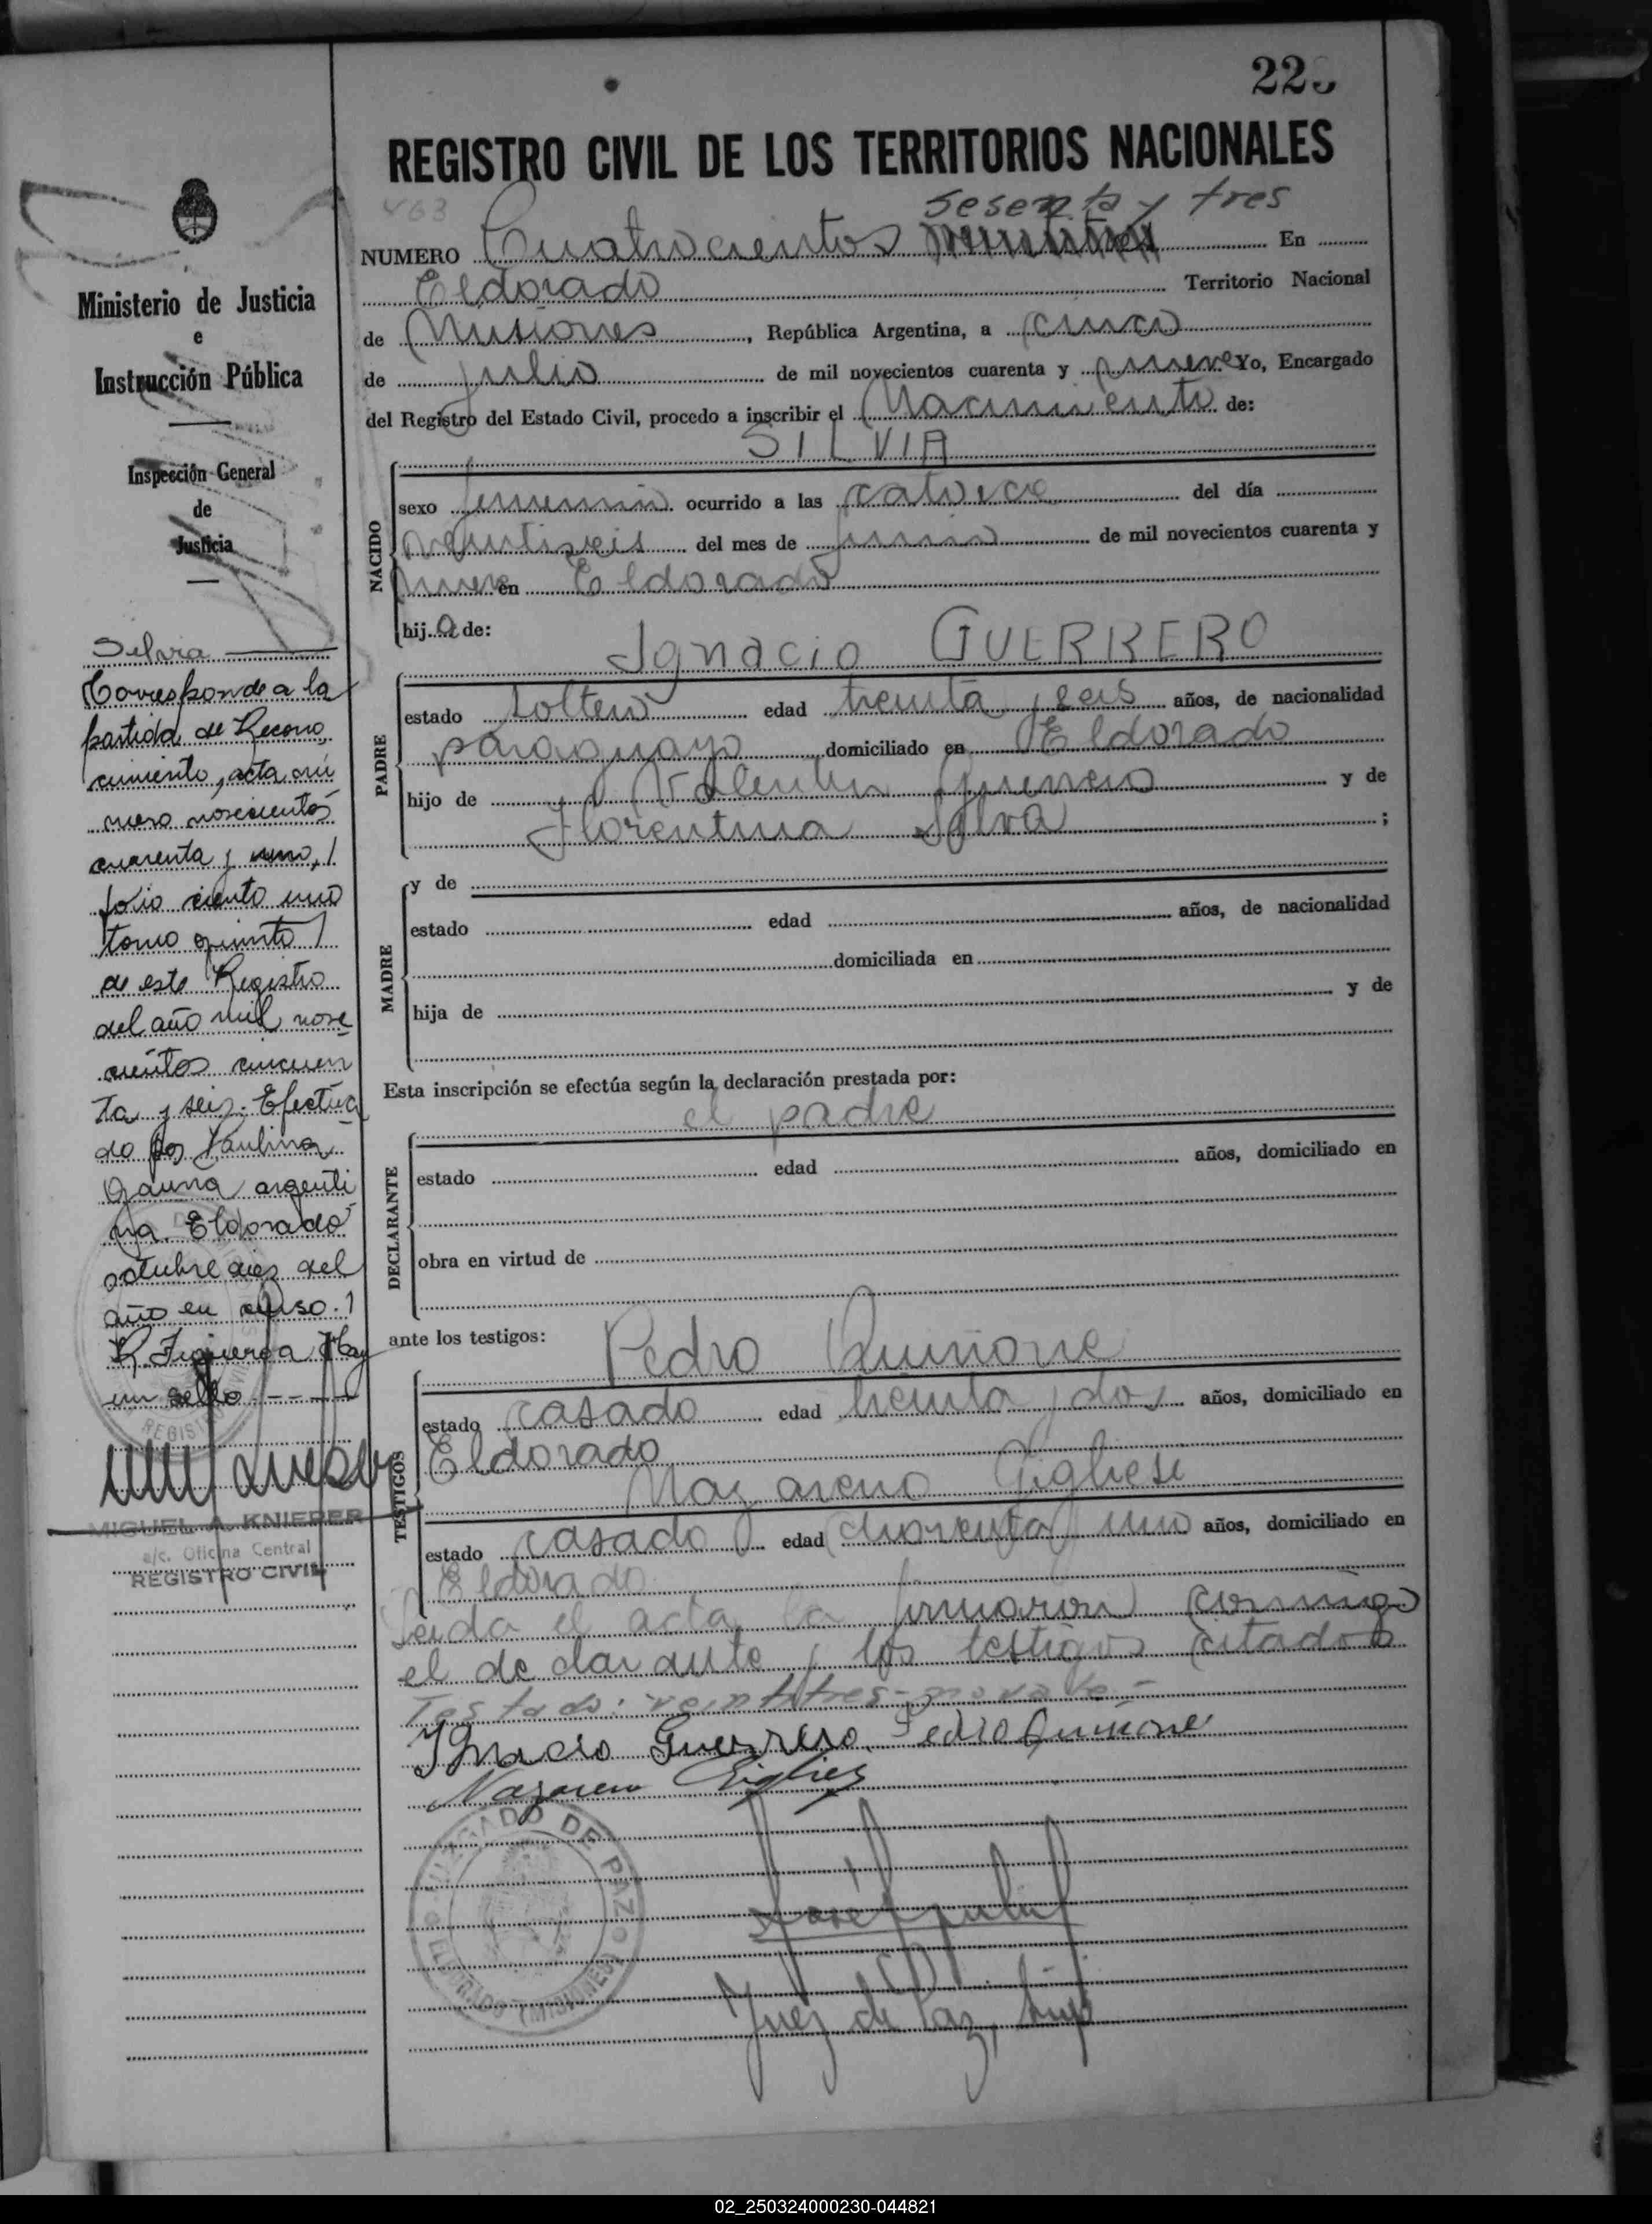 22
REGISTRO CIVIL DE LOS TERRITORIOS NACIONALES
463
sesenta y tres
NUMERO Cuatrocientos En
Eldorado Territorio Nacional
de Misiones, República Argentina, a cinco
de julio de mil novecientos cuarenta y nueve Yo, Encargado
del Registro del Estado Civil, procedo a inscribir el Nacimiento de:
SILVIA
NACIDO
sexo femenino ocurrido a las catorce del día
veintiseis del mes de junio de mil novecientos cuarenta y
nueve en Eldorado
hija de:
Ignacio GUERRERO
PADRE
estado soltero edad treinta y seis años, de nacionalidad
paraguayo domiciliado en Eldorado
hijo de Valentin Guerrero y de
Florentina Silva ;
MADRE
y de
estado edad años, de nacionalidad
domiciliada en
hija de y de
Esta inscripción se efectúa según la declaración prestada por:
el padre
DECLARANTE
estado edad años, domiciliado en
obra en virtud de
ante los testigos:
Pedro Quiñone
TESTIGOS
estado casado edad treinta y dos años, domiciliado en
Eldorado
Nazareno Gigliesi
estado casado edad cuarenta y uno años, domiciliado en
Eldorado
Leida el acta la firmaron conmigo
el declarante y los testigos citados
Testado: veintitres - no vale.-
Ignacio Guerrero. Pedro Quiñone
Nazareno
JUZGADO DE PAZ
ELDORADO (MISIONES)
Juez de Paz,
Ministerio de Justicia
e
Instrucción Pública
Inspección General
de
Justicia
Silvia
Corresponde a la
partida de Recono
cimiento, acta nú
mero novecientos
cuarenta y uno,
folio ciento uno
tomo quinto
de este Registro
del año mil nove
cientos cincuen
ta y seis. Efectua
do por Paulina
Gauna argenti
na. Eldorado
octubre diez del
año en curso.
R. Figueroa Hay
un sello ----
MIGUEL A. KNIEPER
a/c. Oficina Central
REGISTRO CIVIL
02_250324000230-044821